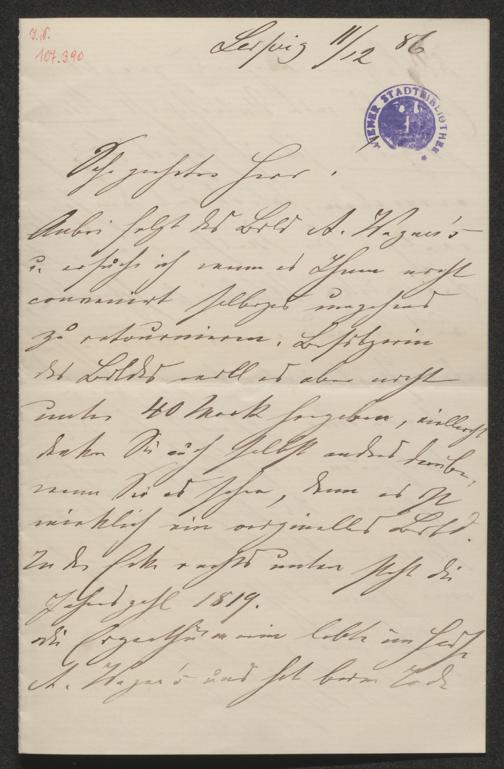 I.N.
107.390
Leipzig 11/12 86
WIENER STADTBIBLIOTHEK
Sehr geehrter Herr.
Anbei folgt das Bild A. Wagner's
u. ersuche ich wenn es Ihnen nicht
convenirt selbiges umgehend
zu retourniren. Besitzerin
des Bildes will es aber nicht
unter 40 Mark hergeben, vielleicht
denken Sie auch selbst anders darüber,
wenn Sie es sehen, denn es ist
wirklich ein originelles Bild.
In der Ecke rechts unten steht die
Jahreszahl 1819.
die Eigenthümerin lebte im Hause
A. Wagner's und hat beim Tode